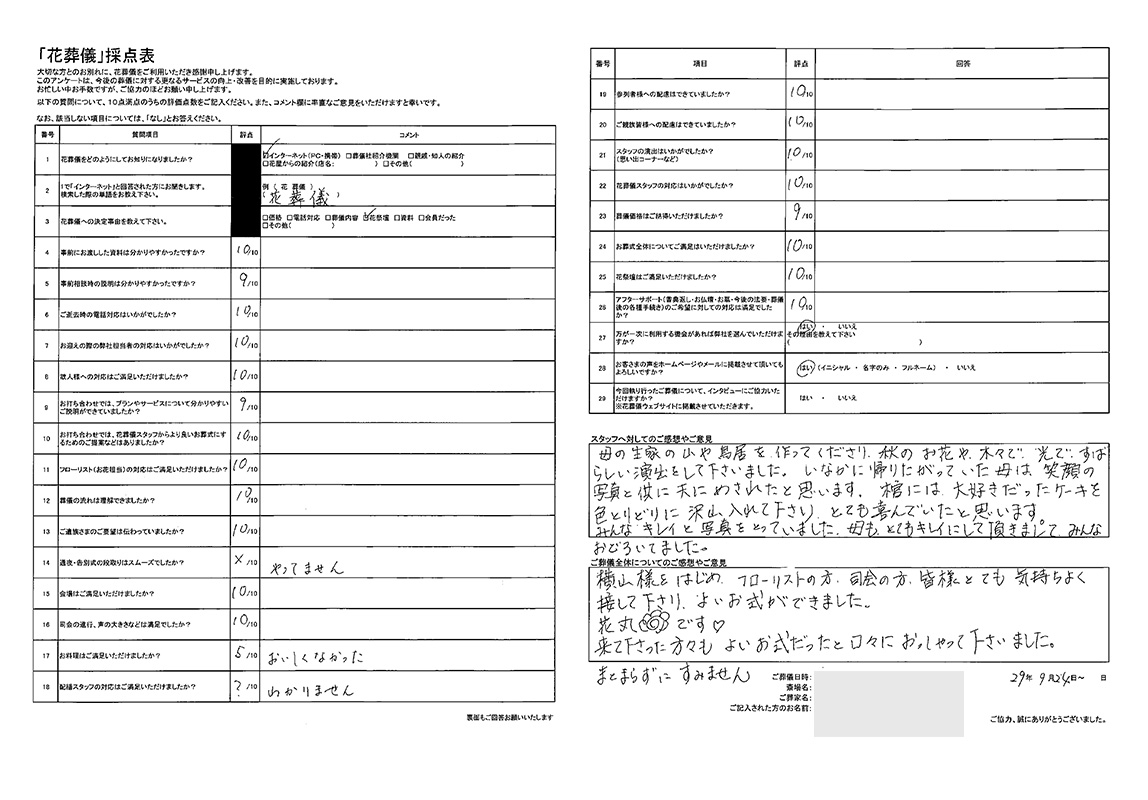 「花葬儀」採点表
大切な方とのお別れに、花葬儀をご利用いただき感謝申し上げます。
このアンケートは、今後の葬儀に対する更なるサービスの向上・改善を目的に実施しております。
お忙しい中お手数ですが、ご協力のほどお願い申し上げます。
以下の質問について、10点満点のうちの評価点数をご記入ください。また、コメント欄に率直なご意見をいただけますと幸いです。
なお、該当しない項目については、「なし」とお答えください。
番号 質問項目 評点 コメント
1 花葬儀をどのようにしてお知りになりましたか? ☑インターネット(PC・携帯) □葬儀社紹介機関 □親戚・知人の紹介
□花屋からの紹介(店名: ) □その他( )
2 1で「インターネット」と回答された方にお聞きします。
検索した際の単語をお教え下さい。
例 ( 花 葬儀 )
( 花 葬 儀 )
3 花葬儀への決定事由を教えて下さい。 □価格 □電話対応 □葬儀内容 ☑花祭壇 □資料 □会員だった
□その他( )
4 事前にお渡しした資料は分かりやすかったですか? 10/10
5 事前相談時の説明は分かりやすかったですか? 9/10
6 ご逝去時の電話対応はいかがでしたか? 10/10
7 お迎えの際の弊社担当者の対応はいかがでしたか? 10/10
8 故人様への対応はご満足いただけましたか? 10/10
9 お打ち合わせでは、プランやサービスについて分かりやすい
ご説明ができていましたか? 9/10
10 お打ち合わせでは、花葬儀スタッフからより良いお葬式にす
るためのご提案などはありましたか? 10/10
11 フローリスト(お花担当)の対応はご満足いただけましたか? 10/10
12 葬儀の流れは理解できましたか? 10/10
13 ご遺族さまのご要望は伝わっていましたか? 10/10
14 通夜・告別式の段取りはスムーズでしたか? ×/10 やってません
15 会場はご満足いただけましたか? 10/10
16 司会の進行、声の大きさなどは満足でしたか? 10/10
17 お料理はご満足いただけましたか? 5/10 おいしくなかった
18 配膳スタッフの対応はご満足いただけましたか? ?/10 わかりません
裏面もご回答お願いいたします
番号 項目 評点 回答
19 参列者様への配慮はできていましたか? 10/10
20 ご親族皆様への配慮はできていましたか? 10/10
21 スタッフの演出はいかがでしたか?
(思い出コーナーなど) 10/10
22 花葬儀スタッフの対応はいかがでしたか? 10/10
23 葬儀価格はご納得いただけましたか? 9/10
24 お葬式全体についてご満足はいただけましたか? 10/10
25 花祭壇はご満足いただけましたか? 10/10
26 アフターサポート(香典返し・お仏壇・お墓・今後の法要・葬儀
後の各種手続き)のご希望に対しての対応は満足でした
か? 10/10
27 万が一次に利用する機会があれば弊社を選んでいただけま
すか? はい ・ いいえ
その理由を教えて下さい
( )
28 お客さまの声をホームページやメールに掲載させて頂いても
よろしいですか? はい (イニシャル ・ 名字のみ ・ フルネーム) ・ いいえ
29 今回執り行ったご葬儀について、インタビューにご協力いた
だけますか? はい ・ いいえ
※花葬儀ウェブサイトに掲載させていただきます。
スタッフへ対してのご感想やご意見
母の生家の山や鳥居を作ってくださり、秋のお花や、木々で、光で、すば
らしい演出をして下さいました。いなかに帰りたがっていた母は、笑顔の
写真と供に天にめされたと思います。棺には、大好きだったケーキを
色とりどりに沢山入れて下さり、とても喜んでいたと思います
みんなキレイと写真をとっていました。母も、とてもキレイにして頂きまして、みんな
おどろいてました。
ご葬儀全体についてのご感想やご意見
横山様をはじめ、フローリストの方、司会の方、皆様とても気持ちよく
接して下さり、よいお式ができました。
花丸 です♡
来て下さった方々もよいお式だったと口々におっしゃって下さいました。
まとまらずにすみません
ご葬儀日時: 29年 9月24日～ 日
斎場名:
ご葬家名:
ご記入された方のお名前:
ご協力、誠にありがとうございました。